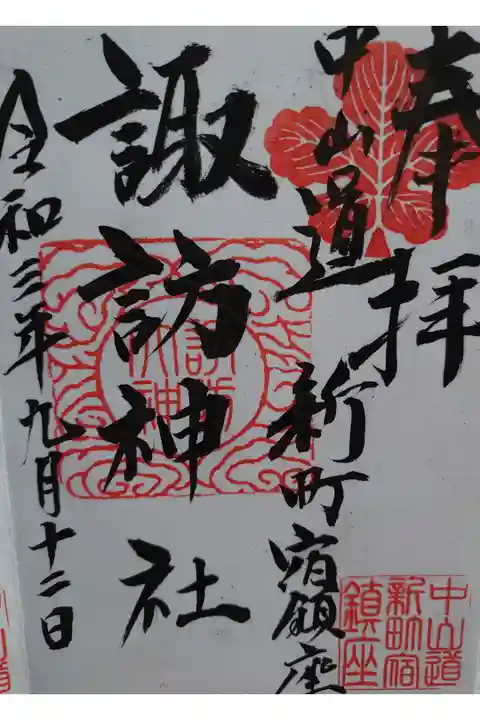 奉拝
中山道新町宿鎮座
諏訪神社
令和三年九月十二日
中山道
新町宿
鎮座